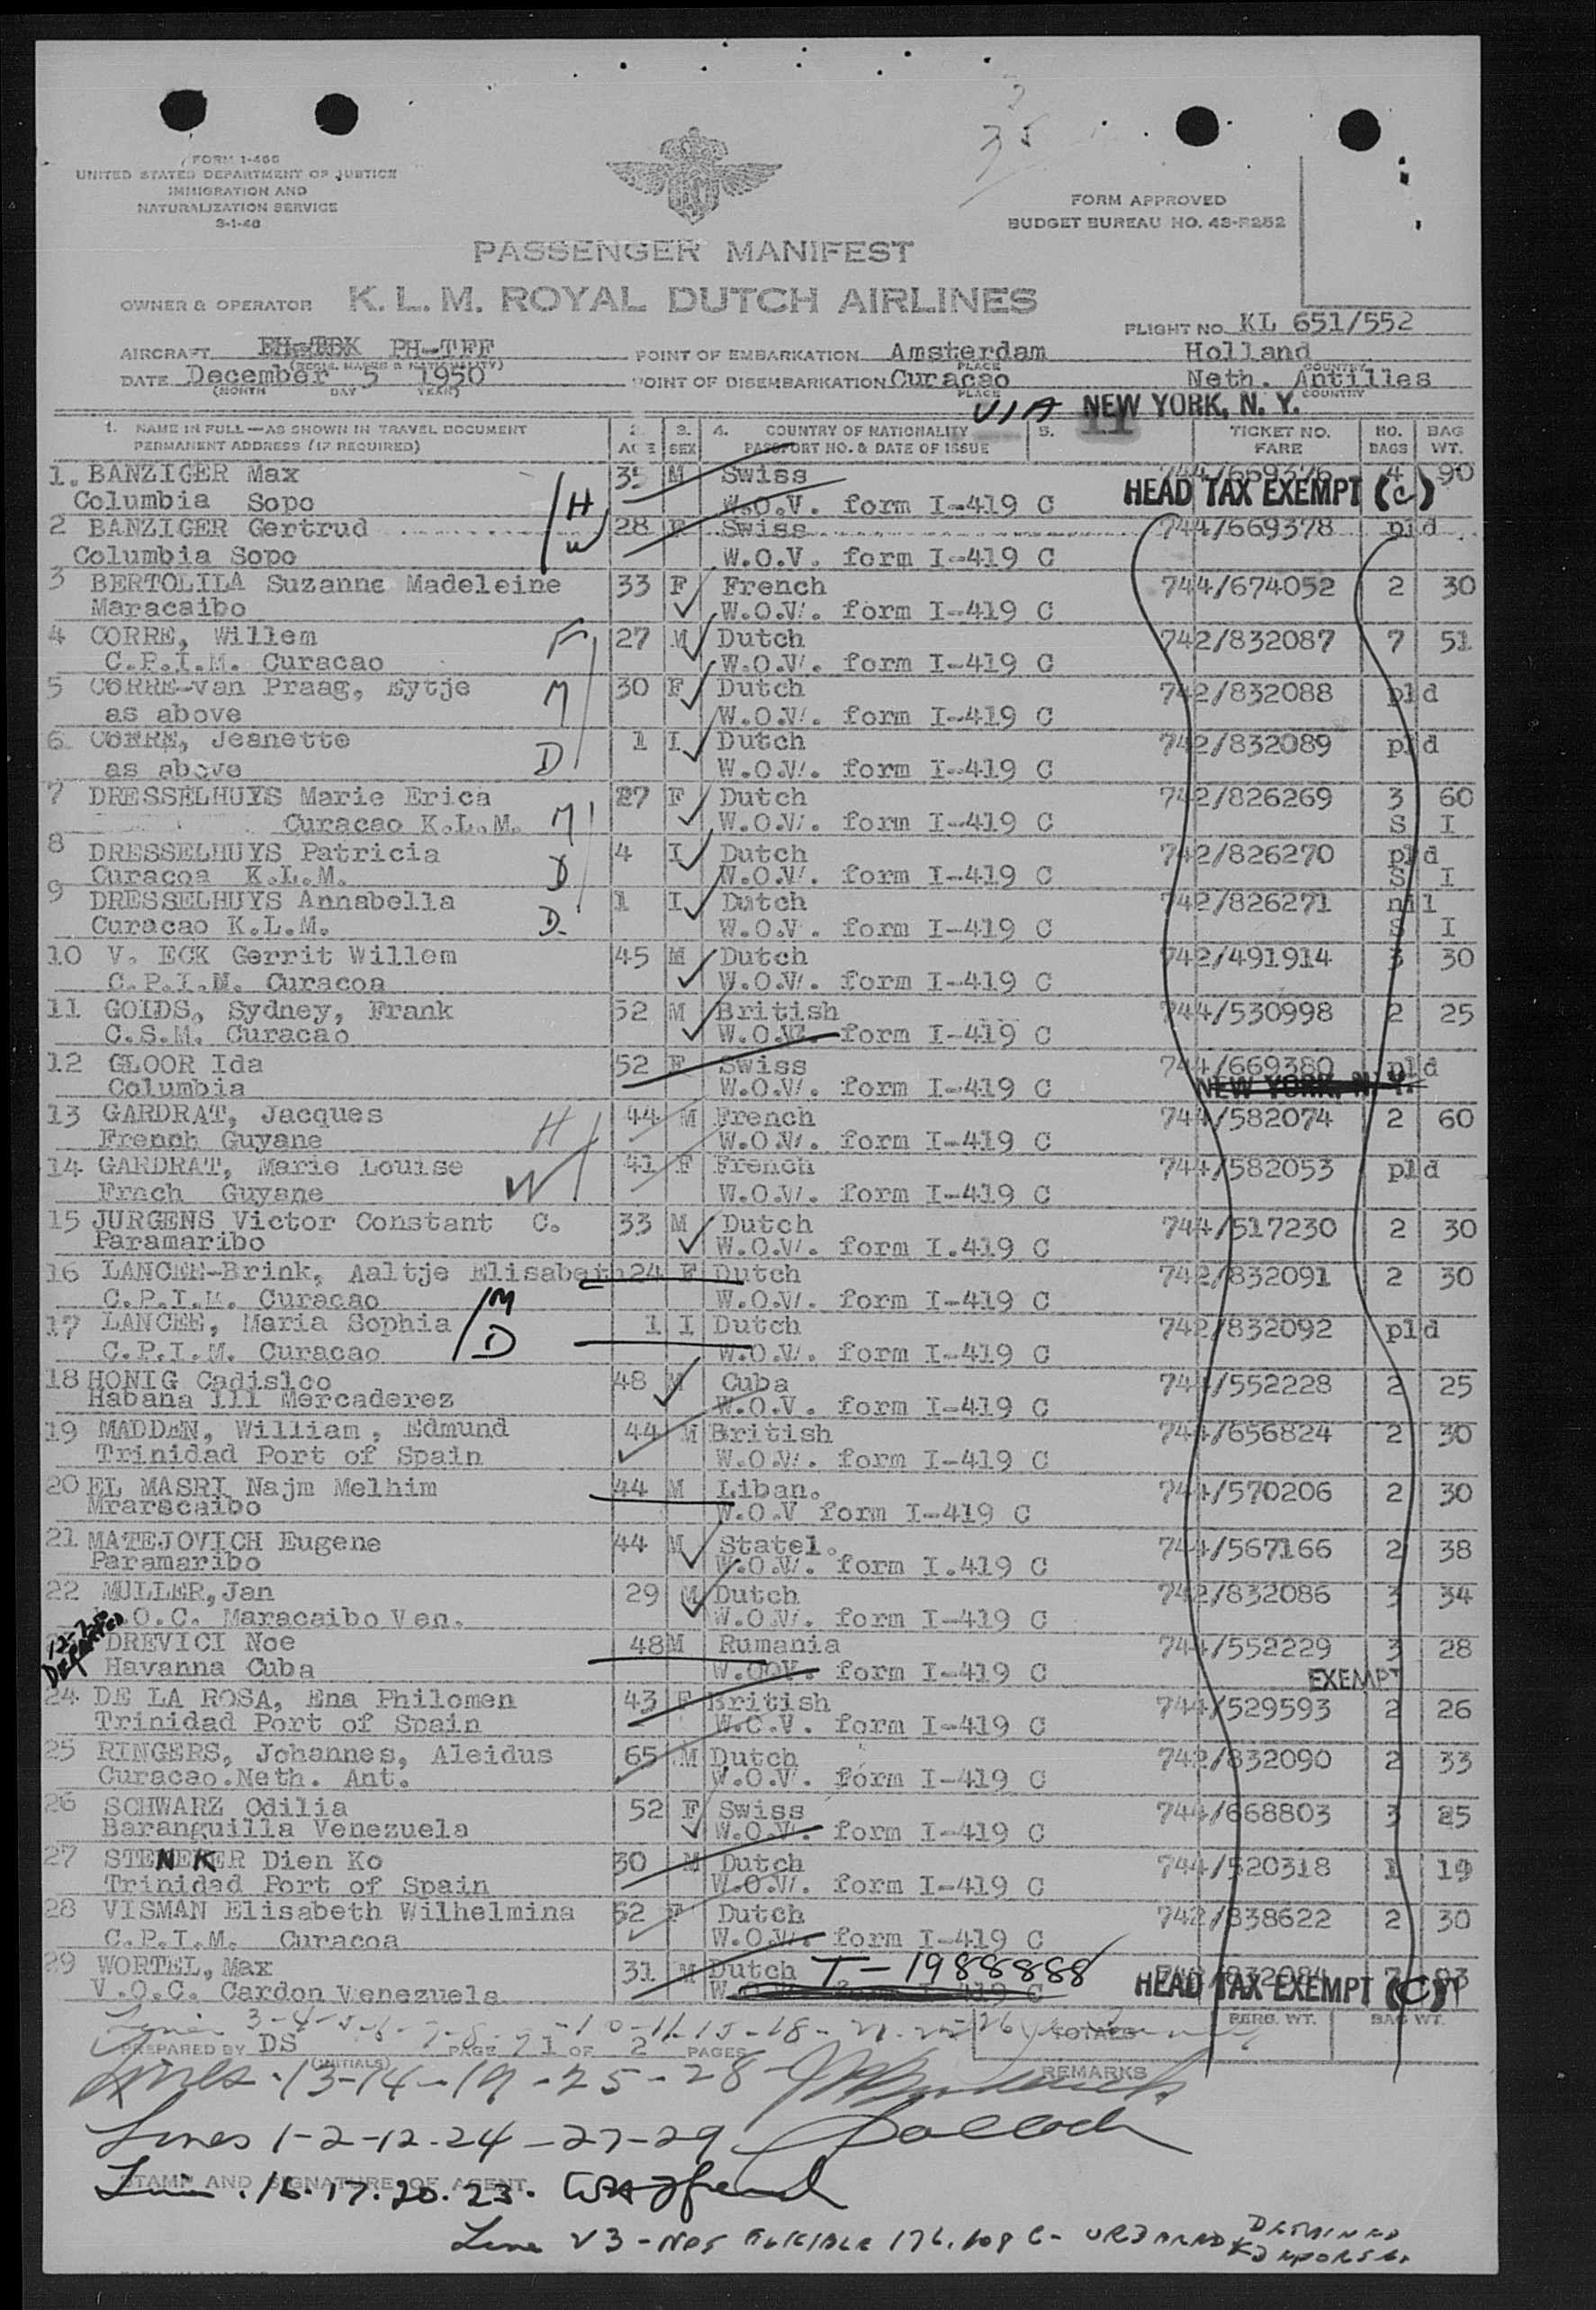 FORM I-466
UNITED STATES DEPARTMENT OF JUSTICE
IMMIGRATION AND
NATURALIZATION SERVICE
3-1-48
FORM APPROVED
BUDGET BUREAU NO. 43-R252
PASSENGER MANIFEST
OWNER & OPERATOR K. L. M. ROYAL DUTCH AIRLINES
FLIGHT NO. KL 651/552
AIRCRAFT PH-TFF POINT OF EMBARKATION Amsterdam Holland
(REGIS. MARKS & NATIONALITY) PLACE COUNTRY
DATE December 5 1950 POINT OF DISEMBARKATION Curacao Neth. Antilles
(MONTH DAY YEAR) PLACE COUNTRY
VIA NEW YORK, N. Y.
11
1. NAME IN FULL—AS SHOWN IN TRAVEL DOCUMENT 2. 3. 4. COUNTRY OF NATIONALITY 5. TICKET NO. NO. BAG
PERMANENT ADDRESS (IF REQUIRED) AGE SEX PASSPORT NO. & DATE OF ISSUE FARE BAGS WT.
1. BANZIGER Max 35 M Swiss 744/669376 4 90
Columbia Sopo H W.O.V. form I-419 C HEAD TAX EXEMPT (c)
2 BANZIGER Gertrud W 28 F Swiss 744/669378 pld
Columbia Sopo W.O.V. form I-419 C
3 BERTOLILA Suzanne Madeleine 33 F French 744/674052 2 30
Maracaibo W.O.V. form I-419 C
4 CORRE, Willem F 27 M Dutch 742/832087 7 51
C.P.I.M. Curacao W.O.V. form I-419 C
5 CORRE-van Praag, Eytje M 30 F Dutch 742/832088 pld
as above W.O.V. form I-419 C
6 CORRE, Jeanette 1 I Dutch 742/832089 pld
as above D W.O.V. form I-419 C
7 DRESSELHUYS Marie Erica 27 F Dutch 742/826269 3 60
Curacao K.L.M. M W.O.V. form I-419 C S I
8 DRESSELHUYS Patricia 4 I Dutch 742/826270 pld
Curacoa K.L.M. D W.O.V. form I-419 C S I
9 DRESSELHUYS Annabella 1 I Dutch 742/826271 nil
Curacao K.L.M. D. W.O.V. form I-419 C S I
10 V. ECK Gerrit Willem 45 M Dutch 742/491914 3 30
C.P.I.M. Curacoa W.O.V. form I-419 C
11 GOIDS, Sydney, Frank 52 M British 744/530998 2 25
C.S.M. Curacao W.O.V. form I-419 C
12 GLOOR Ida 52 F Swiss 744/669380 pld
Columbia W.O.V. form I-419 C NEW YORK, N. Y.
13 GARDRAT, Jacques 44 M French 744/582074 2 60
French Guyane H W.O.V. form I-419 C
14 GARDRAT, Marie Louise 41 F French 744/582053 pld
Frnch Guyane W W.O.V. form I-419 C
15 JURGENS Victor Constant C. 33 M Dutch 744/517230 2 30
Paramaribo W.O.V. form I.419 C
16 LANCEE-Brink, Aaltje Elisabeth 24 F Dutch 742/832091 2 30
C.P.I.M. Curacao M W.O.V. form I-419 C
17 LANCEE, Maria Sophia 1 I Dutch 742/832092 pld
C.P.I.M. Curacao D W.O.V. form I-419 C
18 HONIG Cadislco 48 M Cuba 744/552228 2 25
Habana 111 Mercaderez W.O.V. form I-419 C
19 MADDEN, William, Edmund 44 M British 744/656824 2 30
Trinidad Port of Spain W.O.V. form I-419 C
20 EL MASRI Najm Melhim 44 M Liban. 744/570206 2 30
Mraracaibo W.O.V form I-419 C
21 MATEJOVICH Eugene 44 M Statel. 744/567166 2 38
Paramaribo W.O.V. form I.419 C
22 MULLER, Jan 29 M Dutch 742/832086 3 34
.O.C. Maracaibo Ven. W.O.V. form I-419 C
DEPARTED
DREVICI Noe 48 M Rumania 744/552229 3 28
Havanna Cuba W.OOV. form I-419 C EXEMPT
24 DE LA ROSA, Ena Philomen 43 F British 744/529593 2 26
Trinidad Port of Spain W.O.V. form I-419 C
25 RINGERS, Johannes, Aleidus 65 M Dutch 742/832090 2 33
Curacao.Neth. Ant. W.O.V. form I-419 C
26 SCHWARZ Odilia 52 F Swiss 744/668803 3 25
Baranguilla Venezuela W.O.V. form I-419 C
27 STENEKER Dien Ko 30 M Dutch 744/520318 1 19
Trinidad Port of Spain W.O.V. form I-419 C
28 VISMAN Elisabeth Wilhelmina 52 F Dutch 742/838622 2 30
C.P.I.M. Curacoa W.O.V. form I-419 C
29 WORTEL, Max 31 M Dutch T-1988888
V.O.C. Cardon Venezuela W.O.V. form I-419 C HEAD TAX EXEMPT (C)
TOTALS PERS. WT. BAG WT.
PREPARED BY DS PAGE 1 OF 2 PAGES
(INITIALS) REMARKS
Lines 13-14-19-25-28
Lines 1-2-12-24-27-29
STAMP AND SIGNATURE OF AGENT
Line. 16.17.20.23.